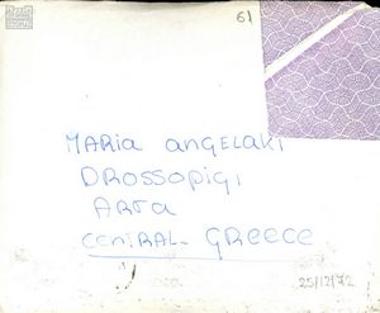 61
MARia angELAKI
DROSSOPIGI,
ARTA
CENTRAL- GREECE
25/12/72